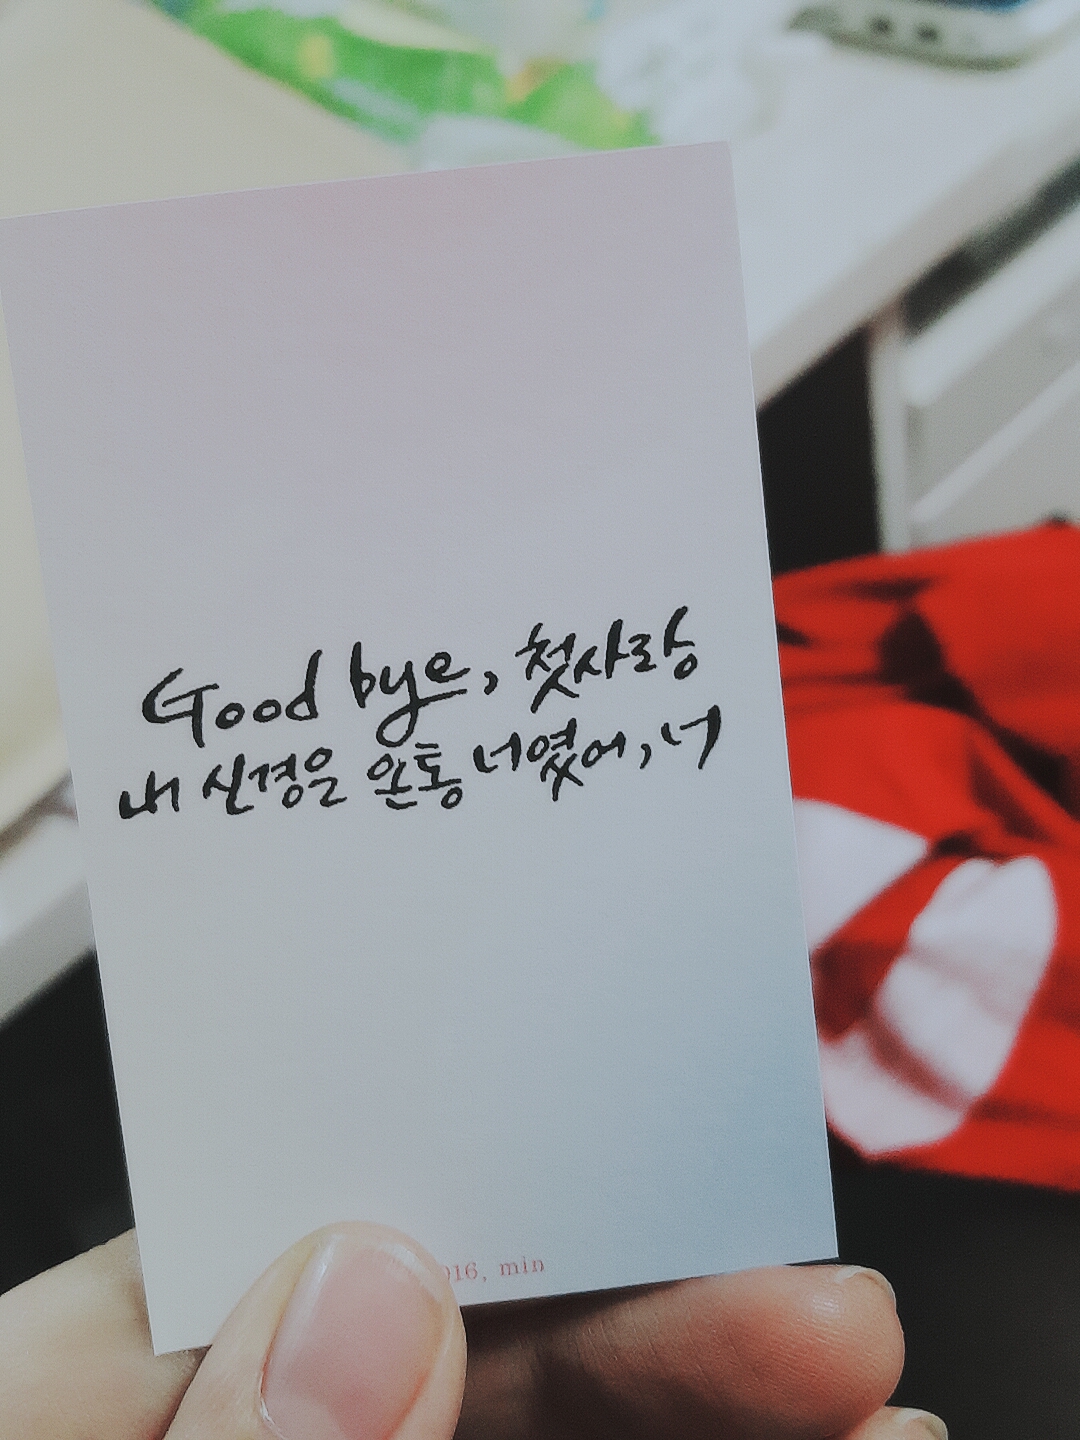 Good bye, 첫사랑
내 신경은 온통 너였어, 너
016, min